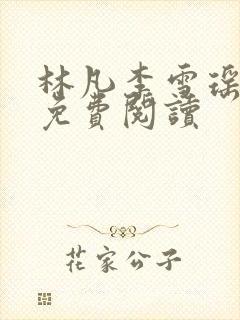 林凡李雪瑶
免費閱讀
花家公子